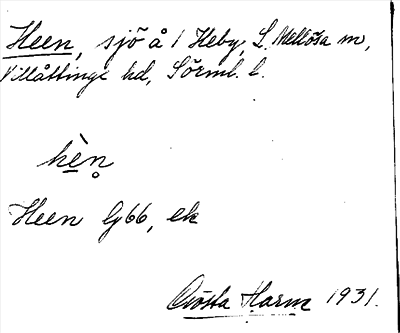 Heen, sjö å 1 Heby, L. Mellösa sn,
Villåttinge hd, Sörml. l.
hèn̥
Heen Gb6, ek
Gösta Harne 1931.